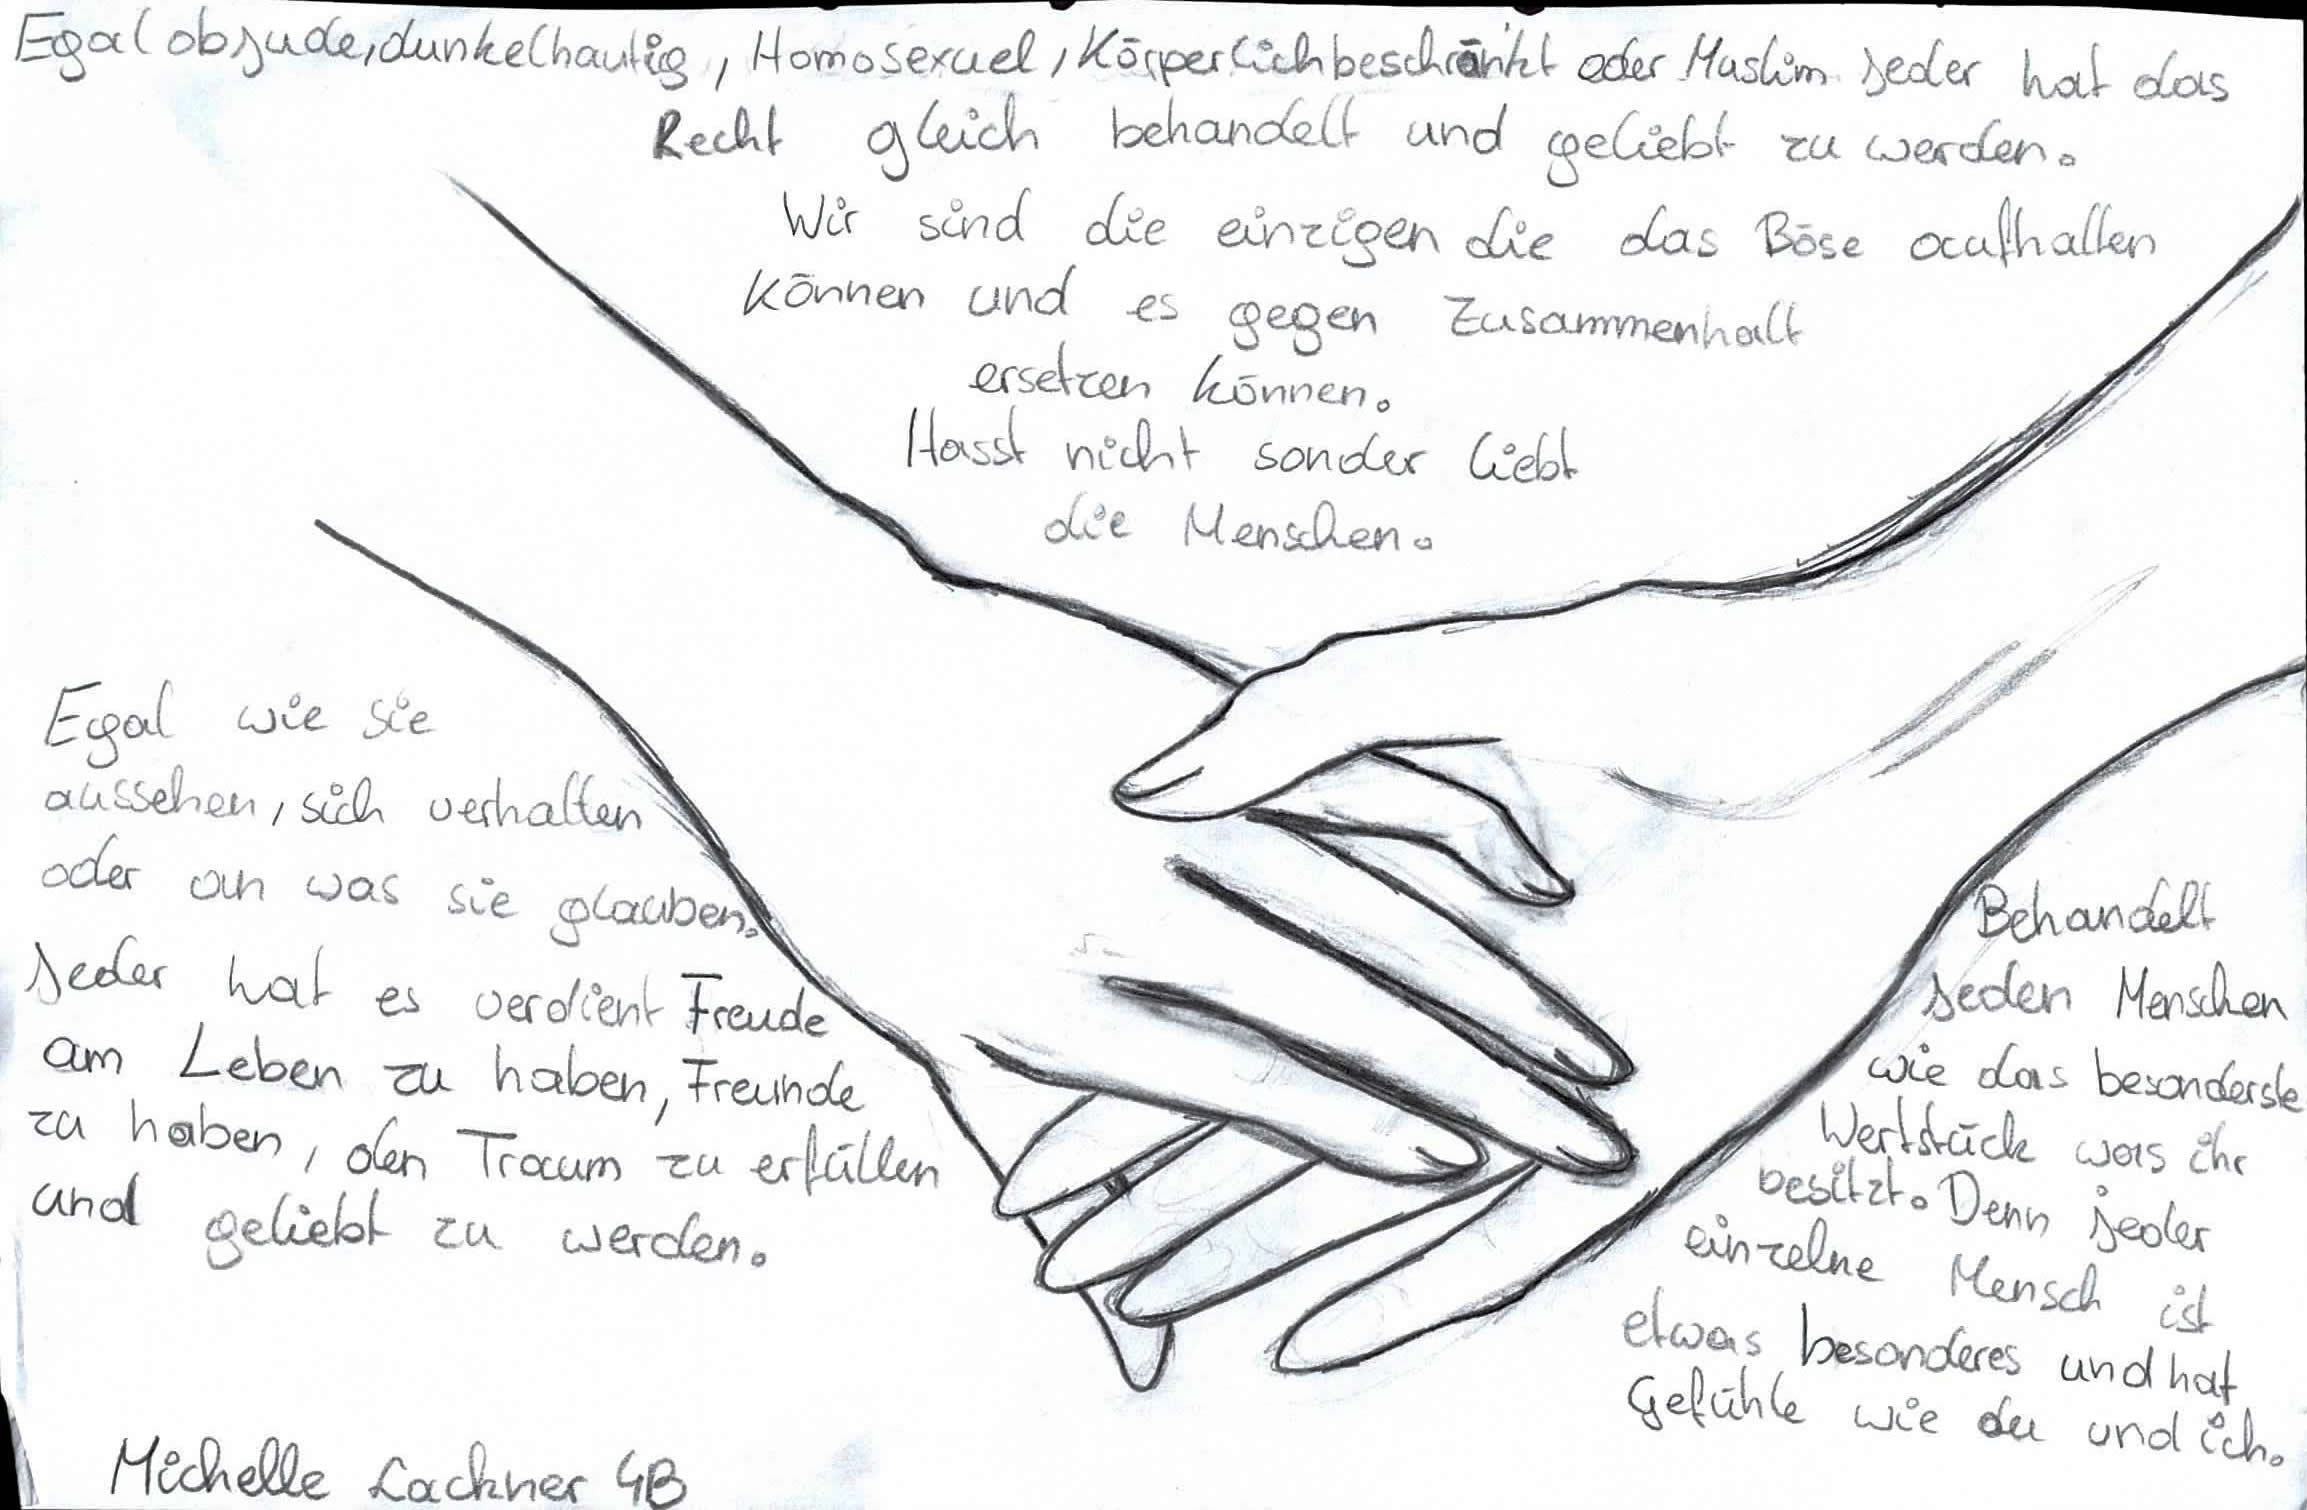 Egal ob Jude, dunkelhautig, Homosexuel, Körperlich beschränkt oder Muslim Jeder hat das
Recht gleich behandelt und geliebt zu werden.
Wir sind die einzigen die das Böse aufhalten
können und es gegen Zusammenhalt
ersetzen können.
Hasst nicht sonder liebt
die Menschen.
Egal wie sie
aussehen, sich verhalten
oder an was sie glauben.
Jeder hat es verdient Freude
am Leben zu haben, Freunde
zu haben, den Traum zu erfüllen
und geliebt zu werden.
Behandelt
jeden Menschen
wie das besonderste
Wertstück was ihr
besitzt. Denn jeder
einzelne Mensch ist
etwas besonderes und hat
Gefühle wie du und ich.
Michelle Lackner 4B